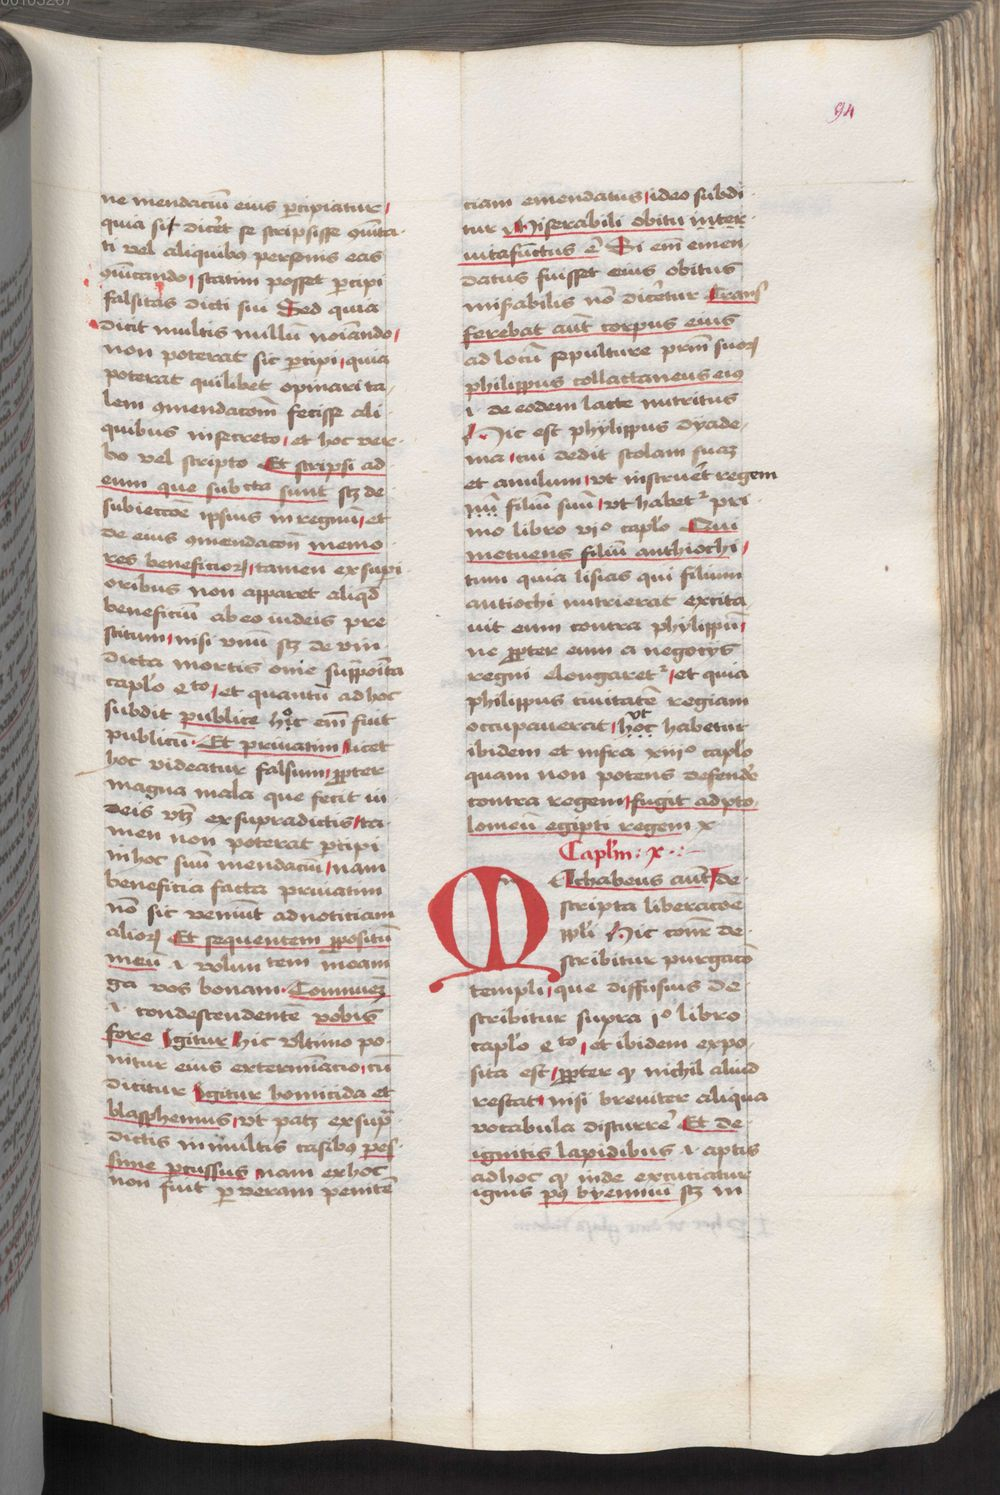 94
ne mendaciū eius ꝑcipiatur
quia si dicēt se scripsisse ꝯmūta
ti vel aliquibꝯ personis eas
ꝯmūicando statim posset ꝑcipi
falsitas dicti sui Sed quia
dicit multis nullū noīando
non poterat sic ꝑcipi quia
poterat quilibet opinari ta
lem ꝯmendacōm̄ fecisse ali
quibus in secreto et hoc ver
bo vel scripto Et scripsi ad
eum que subcta sunt sꝫ de
subieccōe ipsius in regnū et
de eius ꝯmendacōn memo
res beneficioꝝ tamen ex supi
oribus non apparet aliqd
beneficiū ab eo iudeis pre
stitum nisi vnū sꝫ de vin
dicta mortis onie supposita
caplo 4to et quantū ad hoc
subdit publice hoc em̄ fuit
publicū Et priuatim licet
hoc videatur falsum ꝓpter
magna mala que fecit iu
deis vtꝫ ex supradictis ta
men non poterat ꝑcipi
in hoc suū mendaciū nam
beneficia facta priuatim
nō sic veniūt ad noticiam
alioꝝ Et sequentem ꝓpositū
meū .i. volun tem meam
ga vos bonam Comuneꝫ
.i. condescendentē vobis
fore Igitur hic vltimo po
nitur eius exterminacio cū
dicitur Igitur homicida et
blasphemus vt patꝫ ex sup̄
dictis in multis casibꝯ pes
sime ꝑcussus nam ex hoc
non fuit ꝑ veram peniten̄
ciam emendatus ideo subdi
tur Miserabili obitu inter
vita functus ē Si em̄ emen
datus fuisset eius obitus
miẜabilis nō dicetur Trans
ferebat aūt corpus eius
ad locū sepulture prm̄ suoꝝ
philippus collactaneus eiꝯ
.i. de eodem lacte nutritus
Hic est phylippus dyade
ma cui dedit stolam suaꝫ
et anulum vt instrueret regem
filiū suū vt habet᷑ pri
mo libro vi° caplo Qui
metuens filiū anthiochi
tum quia lisias qui filium
antiochi nutrierat excita
uit eum contra phylippū
ne ꝓpter eum a negocijs
regni elongaret᷑ et quia
philippus ciuitatē regiam
occupauerat vt hoc habetur
ibidem et infra xiii° caplo
quam non potens defende
contra regem fugit ad pto
lomeū egipti regem x
Caplm̄ : x .:
Machabeus aūt de
scripta liberacōe
ppli Hic conr̄ de
scribitur purgacō
templi que diffusius de
scribitur supra i° libro
caplo 4to et ibidem expo
sita est ꝓpter qꝫ nichil aliud
restat nisi breuiter aliqua
vocabula discurre Et de
ignitis lapidibus .i. aptis
ad hoc qꝫ inde excuciatur
ignis pꝰ byennuū sꝫ in